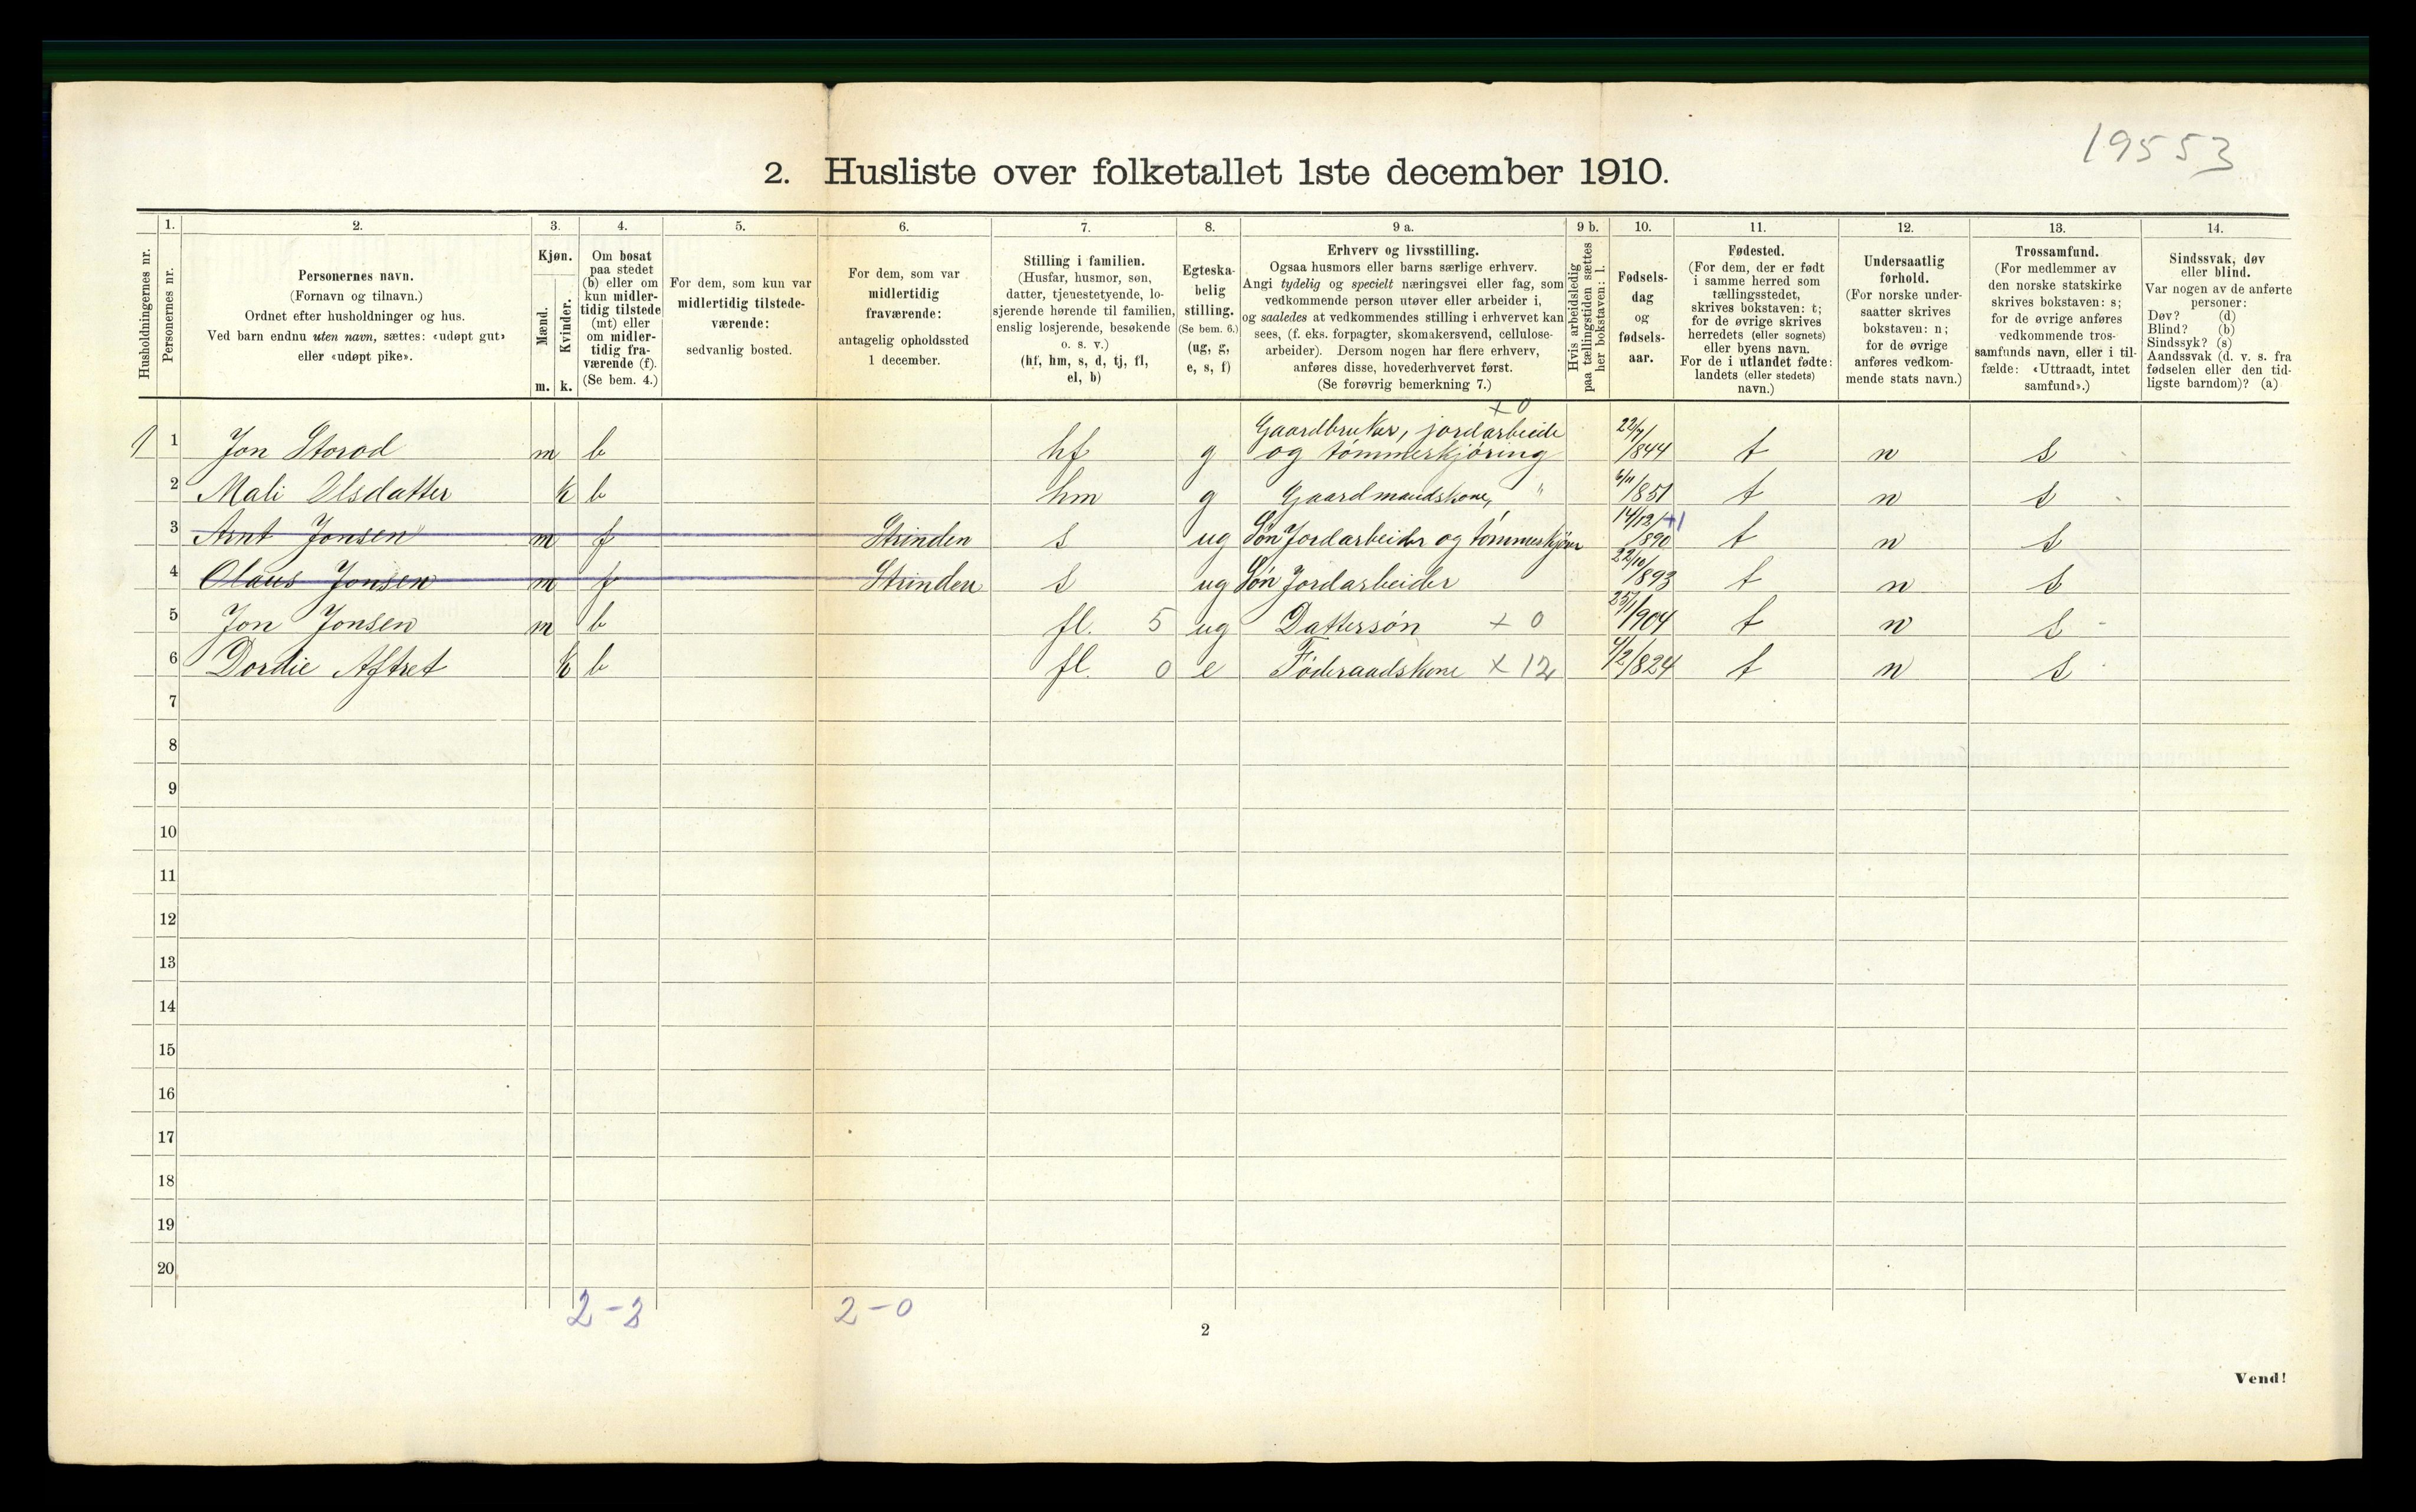 19553
2. Husliste over folketallet 1ste december 1910.
Husholdningernes nr.
1.
Personernes nr.
2.
Personernes navn.
(Fornavn og tilnavn.)
Ordnet efter husholdninger og hus.
Ved barn endnu uten navn, sættes: «udøpt gut»
eller «udøpt pike».
3.
Kjøn.
Mænd.
Kvinder.
m. k.
4.
Om bosat
paa stedet
(b) eller om
kun midler-
tidig tilstede
(mt) eller
om midler-
tidig fra-
værende (f).
(Se bem. 4.)
5.
For dem, som kun var
midlertidig tilstede-
værende:
sedvanlig bosted.
6.
For dem, som var
midlertidig
fraværende:
antagelig opholdssted
1 december.
7.
Stilling i familien.
(Husfar, husmor, søn,
datter, tjenestetyende, lo-
sjerende hørende til familien,
enslig losjerende, besøkende
o. s. v.)
(hf, hm, s, d, tj, fl,
el, b)
8.
Egteska-
belig
stilling.
(Se bem. 6.)
(ug, g,
e, s, f)
9 a.
Erhverv og livsstilling.
Ogsaa husmors eller barns særlige erhverv.
Angi tydelig og specielt næringsvei eller fag, som
vedkommende person utøver eller arbeider i,
og saaledes at vedkommendes stilling i erhvervet kan
sees, (f. eks. forpagter, skomakersvend, cellulose-
arbeider). Dersom nogen har flere erhverv,
anføres disse, hovederhvervet først.
(Se forøvrig bemerkning 7.)
9 b.
Hvis arbeidsledig
paa tællingstiden sættes
her bokstaven: l.
10.
Fødsels-
dag
og
fødsels-
aar.
11.
Fødested.
(For dem, der er født
i samme herred som
tællingsstedet,
skrives bokstaven: t;
for de øvrige skrives
herredets (eller sognets)
eller byens navn.
For de i utlandet fødte:
landets (eller stedets)
navn.)
12.
Undersaatlig
forhold.
(For norske under-
saatter skrives
bokstaven: n;
for de øvrige
anføres vedkom-
mende stats navn.)
13.
Trossamfund.
(For medlemmer av
den norske statskirke
skrives bokstaven: s;
for de øvrige anføres
vedkommende tros-
samfunds navn, eller i til-
fælde: «Uttraadt, intet
samfund».)
14.
Sindssvak, døv
eller blind.
Var nogen av de anførte
personer:
Døv? (d)
Blind? (b)
Sindssyk? (s)
Aandssvak (d. v. s. fra
fødselen eller den tid-
ligste barndom)? (a)
+ 0
1 1 Jon Storød m b hf g Gaardbruker, jordarbeide og tømmerkjøring 22/7/844 t n s
2 Mali Olsdatter k b hm g Gaardmandskone, " 6/11/851 t n s
3 Arnt Jonsen m f Strinden s ug Søn Jordarbeider og tømmerkjører 14/12/890 +1 t n s
4 Olaus Jonsen m f Strinden s ug Søn Jordarbeider 22/10/893 t n s
5 Jon Jonsen m b fl. 5 ug Dattersøn + 0 23/1/904 t n s
6 Dordie Aftret k b fl. 0 e Føderaadskone x 12 4/2/824 t n s
7
8
9
10
11
12
13
14
15
16
17
18
19
20
2-2 2-0
2
Vend!